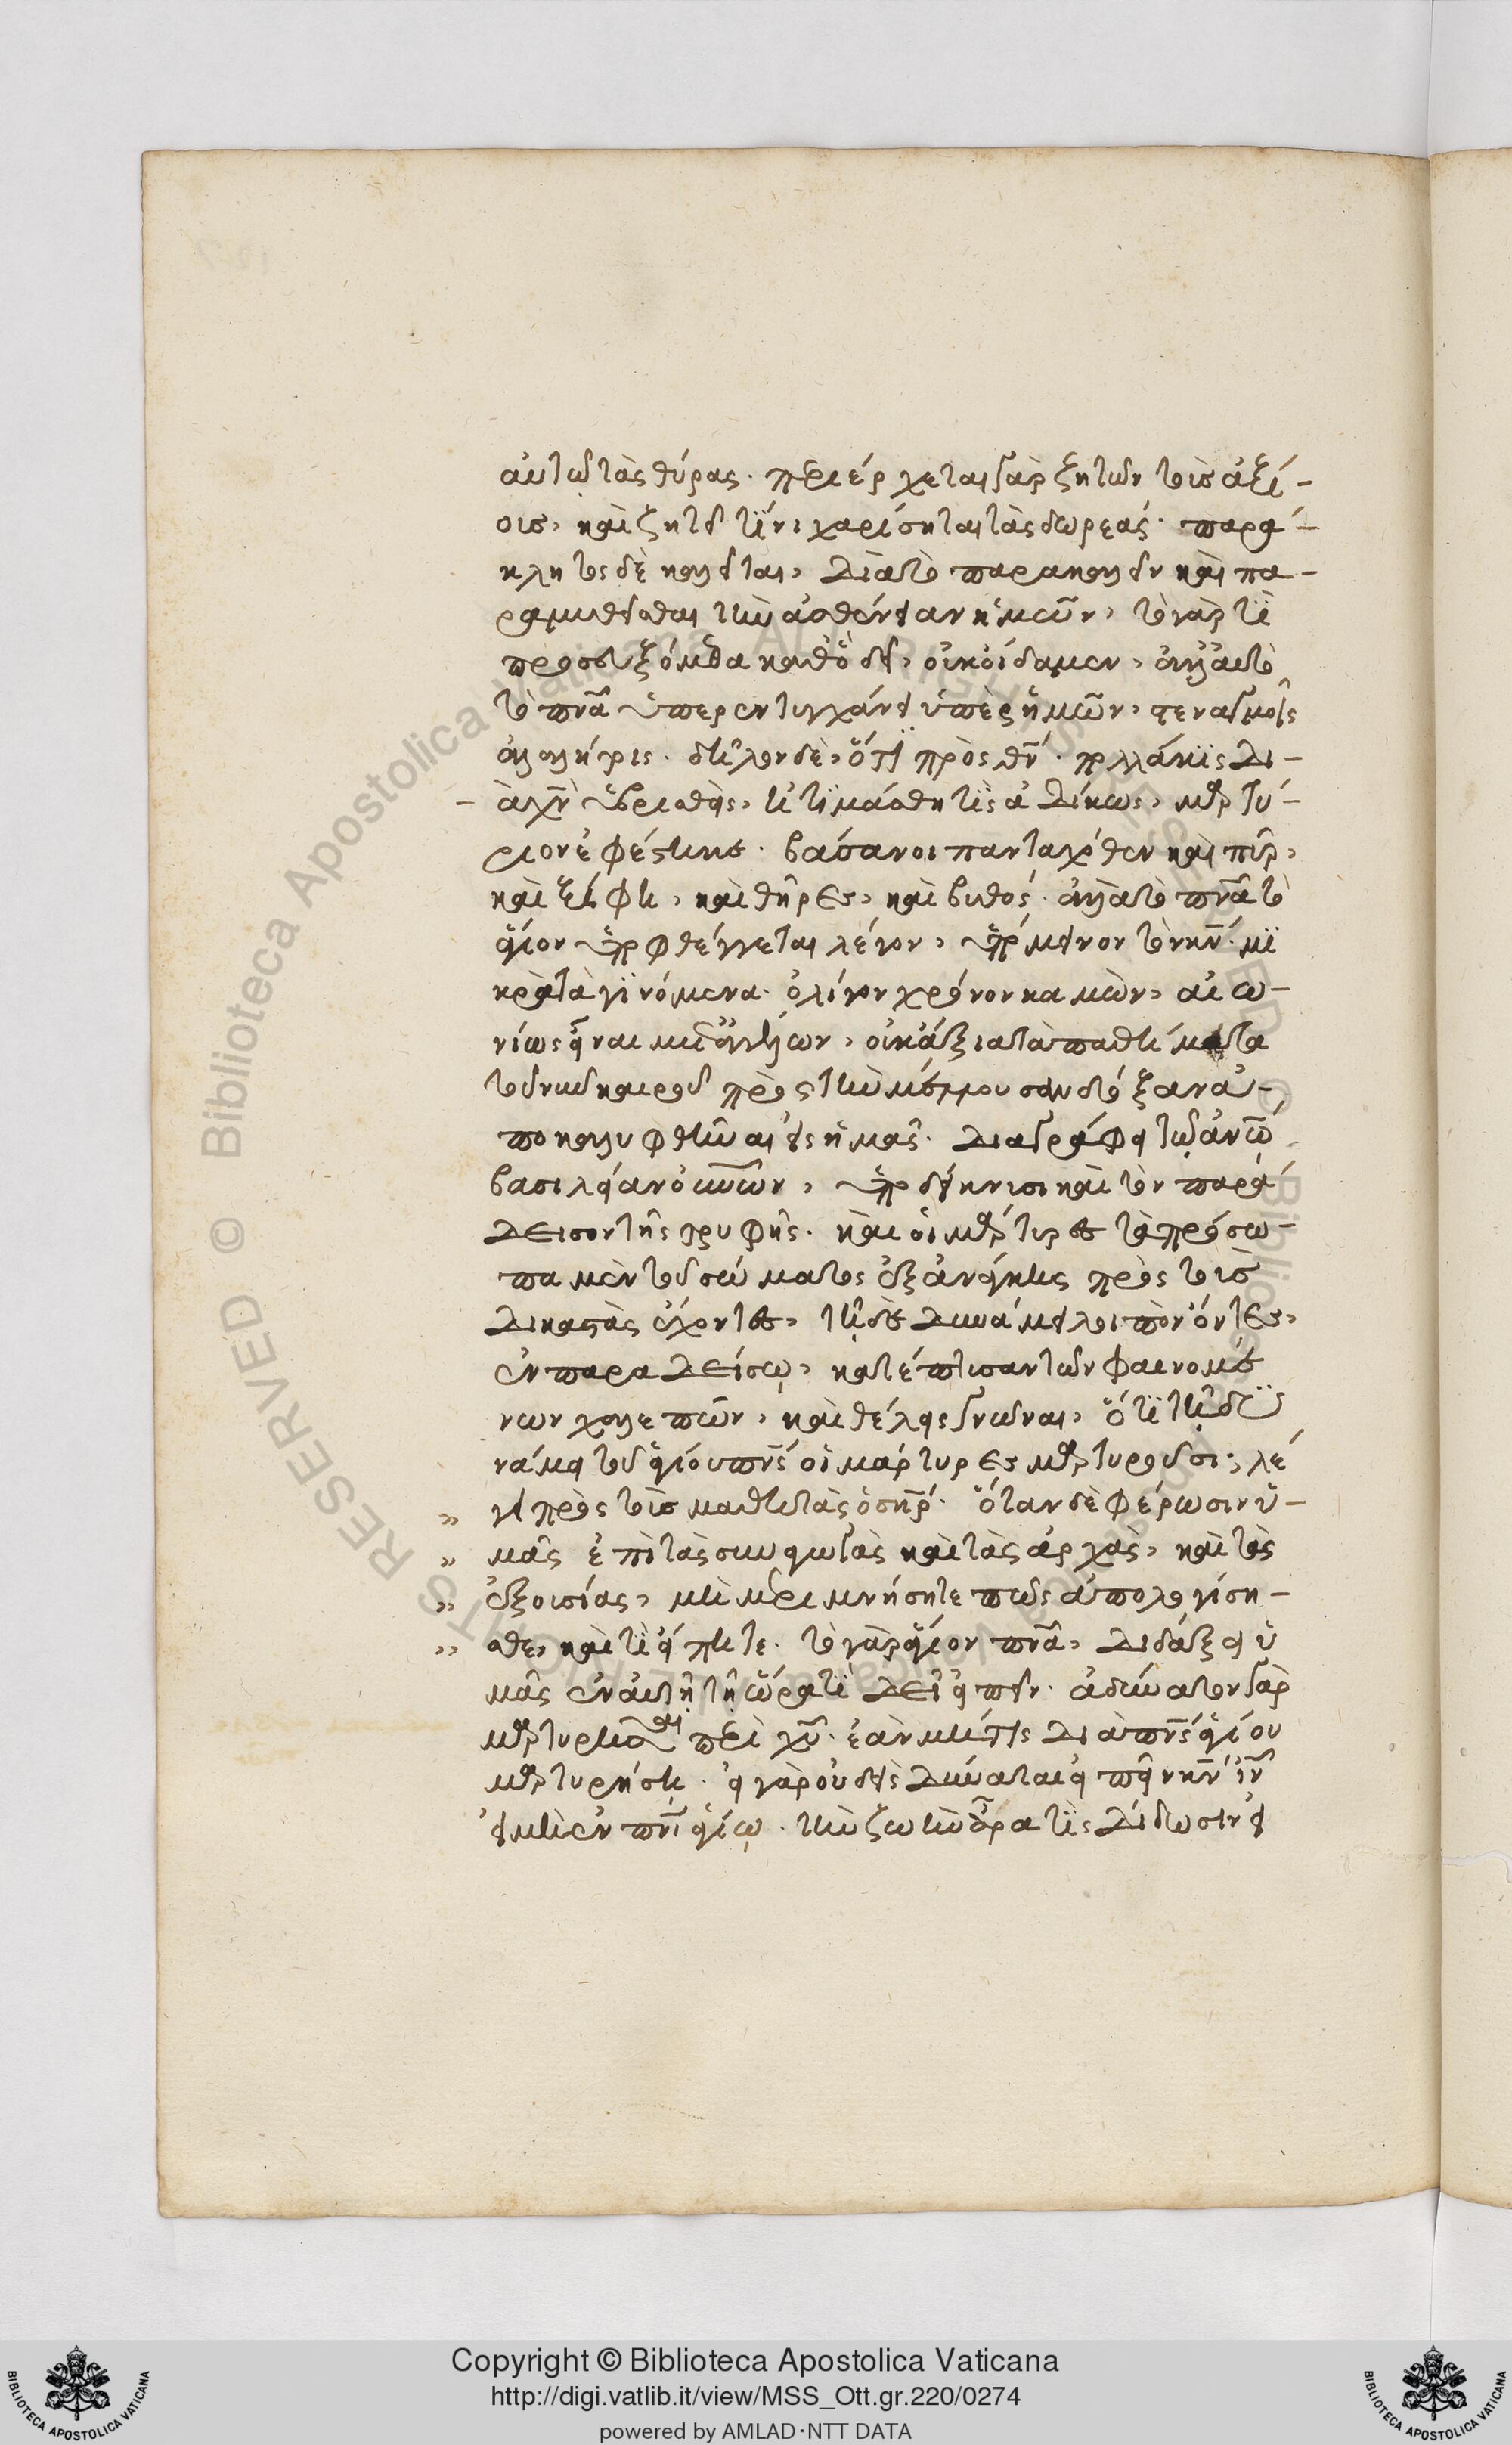 αὐτῷ τὰς θύρας. περιέρχεται γὰρ ζητῶν τοὺς ἀξί-
ους, καὶ ζητεῖ τίνι χαρίσηται τὰς δωρεάς. παρά-
κλητος δὲ καλεῖται, διὰ τὸ παρακαλεῖν καὶ πα-
ραμυθεῖσθαι τὴν ἀσθένειαν ἡμῶν, τὸ γὰρ τί
προσευξόμεθα καθὸ δεῖ, οὐκ οἴδαμεν, ἀλλ' αὐτὸ
τὸ πνα ὑπερεντυγχάνει ὑπὲρ ἡμῶν, στεναγμοῖς
ἀλαλήτοις. δῆλον δὲ, ὅτι πρὸς θν. πολλάκις δι-
ὰ χν ὑβρισθεὶς, ἠτιμάσθη τὶς ἀδίκως, μαρτύ-
ριον ἐφέστηκε. βάσανοι πανταχόθεν καὶ πῦρ,
καὶ ξίφη, καὶ θῆρες, καὶ βυθός. ἀλλὰ τὸ πνα τὸ
ἅγιον ὑποφθέγγεται λέγον, ὑπόμεινον τὸν κν. μι
κρὰ τὰ γινόμενα. ὀλίγον χρόνον καμὼν, αἰω-
νίως εἶναι μετ' ἀγγέλων, οὐκ ἄξια τὰ παθήματα
τοῦ νῦν καιροῦ πρὸς τὴν μέλλουσαν δόξαν ἀ-
ποκαλυφθῆναι εἰς ἡμᾶς. διαγράφει τῷ ἀνω
βασιλείαν οὐνῶν, ὑποδείκνυσι καὶ τὸν παρά
δεισον τῆς τρυφῆς. καὶ οἱ μάρτυρες τὰ πρόσω-
πα μὲν τοῦ σώματος ἐξ ἀνάγκης πρὸς τοὺς
δικαστὰς ἔχοντες, τῇ δὲ δυνάμει λοιπὸν ὄντες,
ἐν παραδείσῳ, κατέπτυσαν τῶν φαινομέ
νων χαλεπῶν, καὶ θέλεις γνῶναι, ὅτι τῇ δυ
νάμει τοῦ ἁγίου πνς οἱ μάρτυρες μαρτυροῦσι; λέ
γει πρὸς τοὺς μαθητὰς ὁ σηρ. ὅταν δὲ φέρωσιν ὑ-
» μᾶς ἐπὶ τὰς συναγωγὰς καὶ τὰς ἀρχὰς, καὶ τὰς
» ἐξουσίας, μὴ μεριμνήσητε πῶς ἀπολογίση-
» σθε, καὶ τί εἴπητε. τὸ γὰρ ἅγιον πνα, διδάξει ὑ
» μᾶς ἐν αὐτῇ τῇ ὥρᾳ τί δεῖ εἰπεῖν. ἀδύνατον γὰρ
μαρτυρῆσαι περὶ χυ. ἐὰν μή τις διὰ πνς ἁγίου
μαρτυρήσῃ. εἰ γὰρ οὐδεὶς δύναται εἰπεῖν κν ιν
εἰ μὴ ἐν πνι ἁγίῳ. τὴν ζωὴν ἆρα τὶς δίδωσιν εἰ